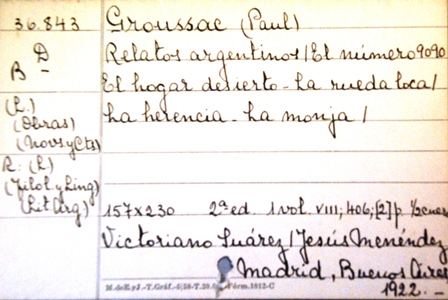 36.843
Groussac (Paul)
D
B -
Relatos argentinos / El número 9090
El hogar desierto - La rueda loca /
La herencia - La monja /
(L.)
(Obras)
(Novs y Cts)
R. (L)
(Filol y Ling)
(Lit Arg)
157x230 2ª ed. 1 vol. VIII; 406; [2] p. ½ cuero
Victoriano Suárez / Jesús Menéndez
Madrid, Buenos Aires
1922. -
M. de E. y J. - T. Gráf.
Fórm. 1012-C